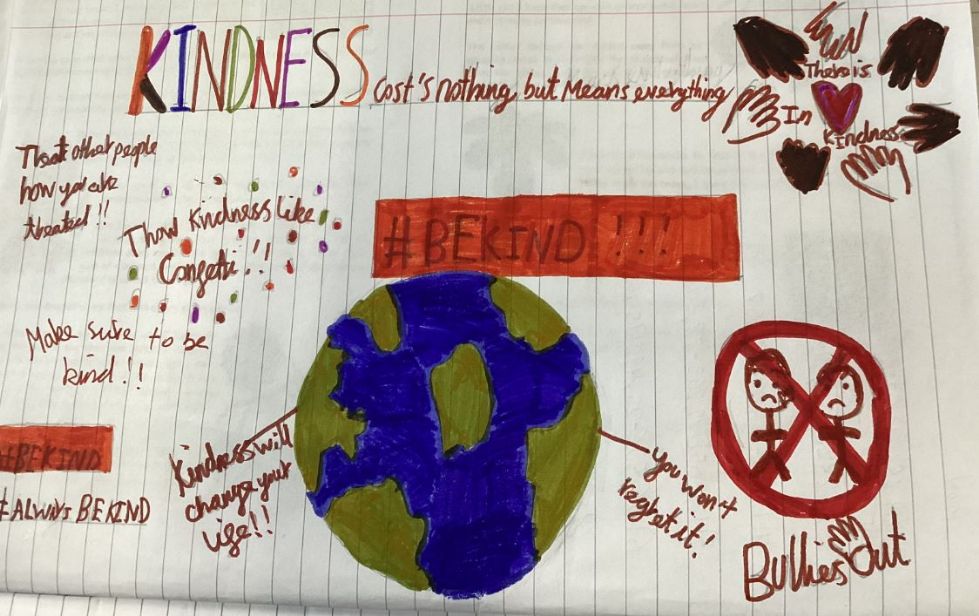 KINDNESS cost's nothing but Means everything
There is
In
Kindness
Treat other people
how you are
treated!!
Thow Kindness Like
Congetti!!
#BEKIND!!!
Make sure to be
kind!!
#BEKIND
#ALWAYS BEKIND
Kindness will
change your
life!!
you won't
regret it!
Bullies Out